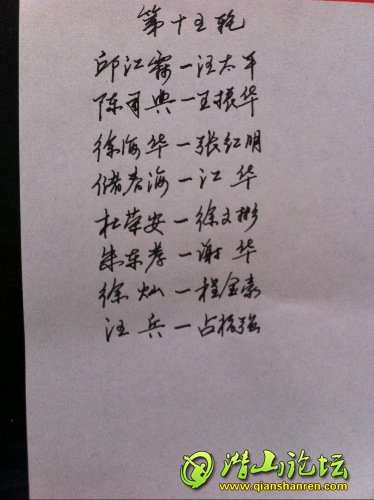 第十五轮
邱江霖一汪太平
陈司典一王振华
徐海华一张红明
储春海一江华
杜荣安一徐文彬
朱东孝一谢华
徐灿一程金豪
汪兵一占根强
潜山论坛
www.qianshanren.com